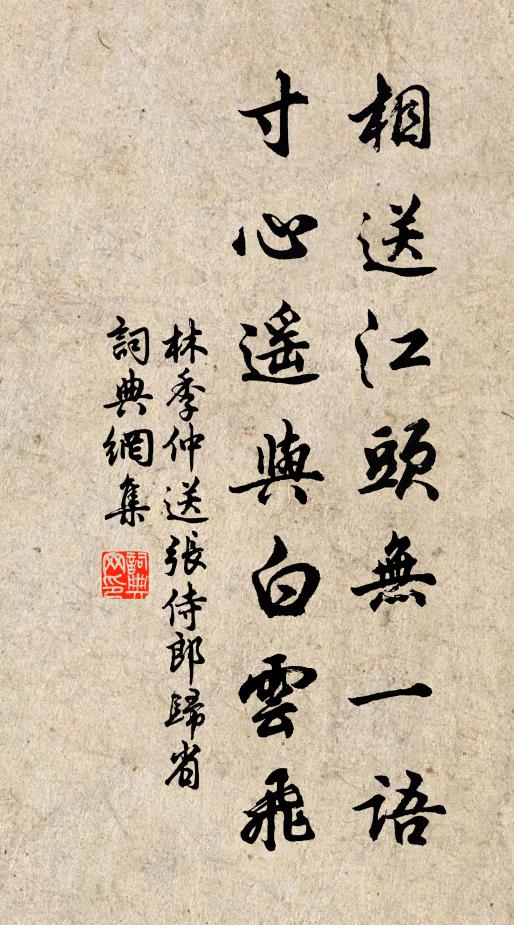 相送江頭無一語
寸心遥與白雲飛
林季仲送張侍郎歸省
詞典網集
詞典
网印